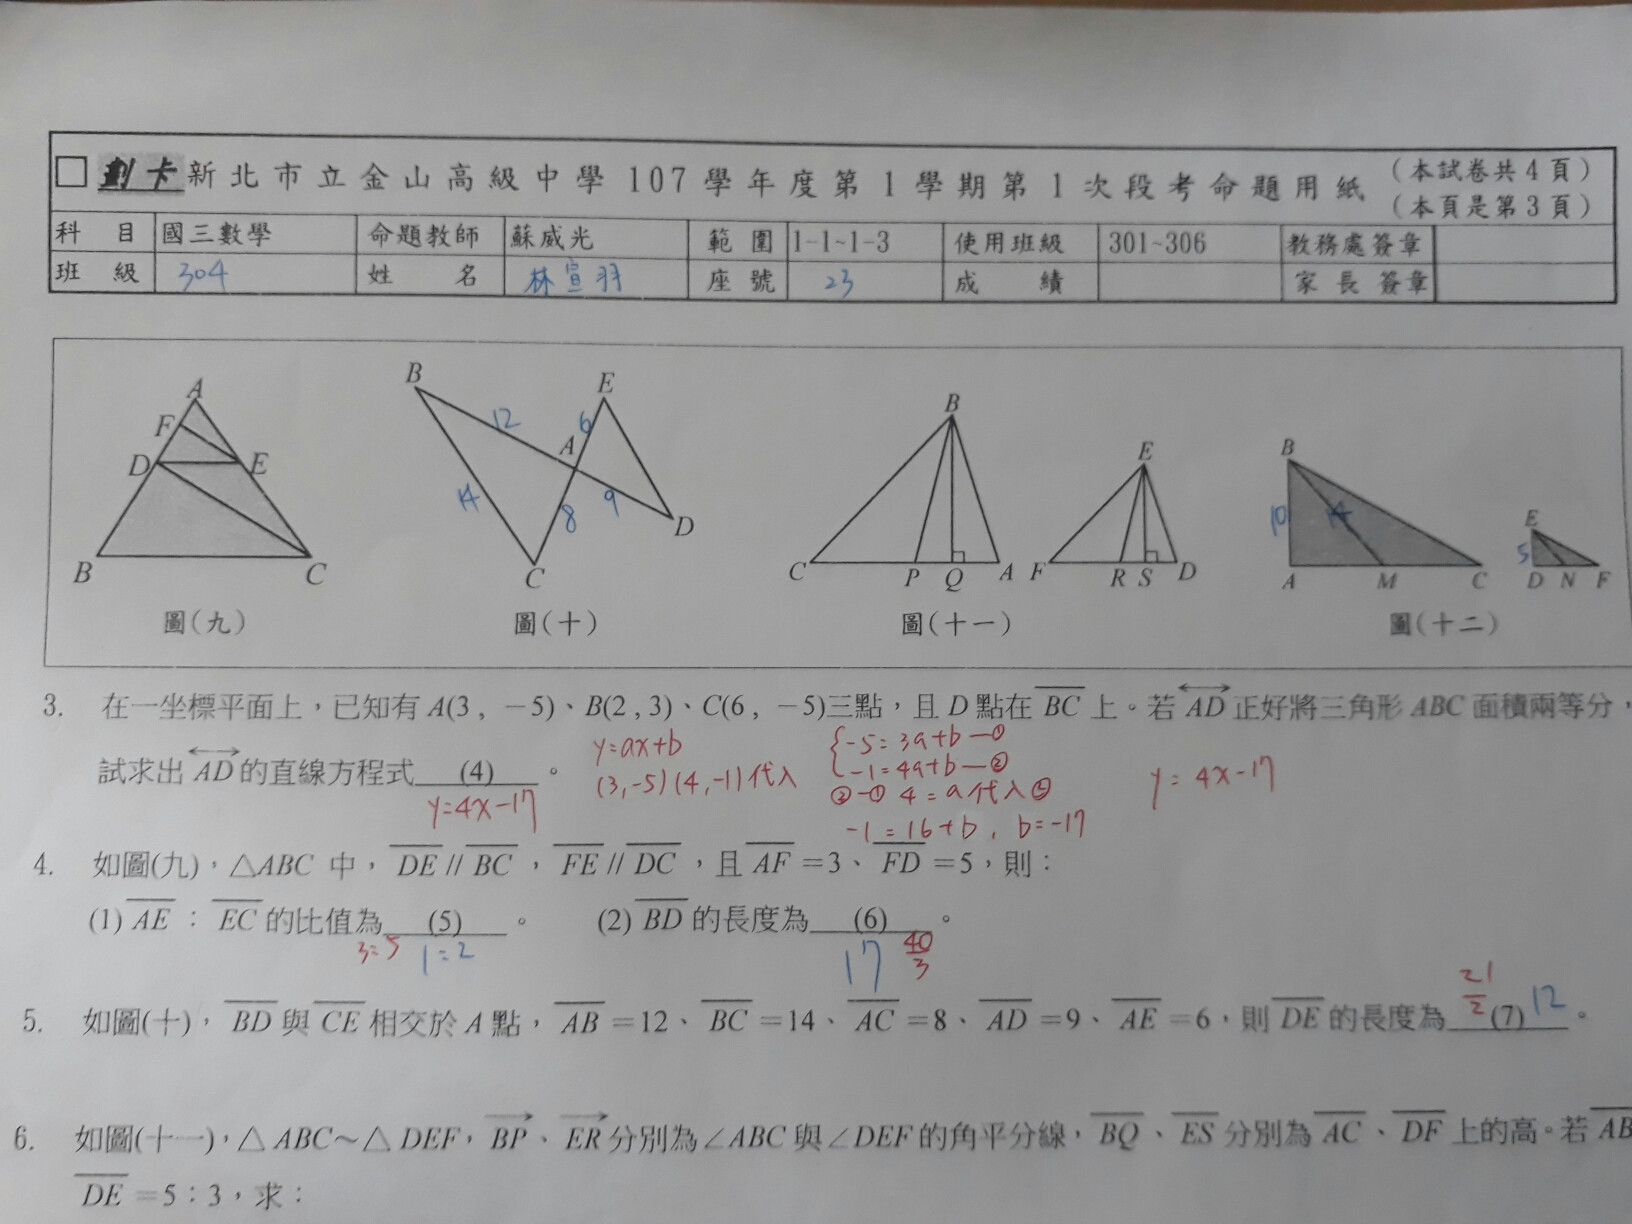 劃卡 新北市立金山高級中學107學年度第1學期第1次段考命題用紙 (本試卷共4頁)
(本頁是第3頁)
科目 國三數學 命題教師 蘇威光 範圍 1-1~1-3 使用班級 301~306 教務處簽章
班級 304 姓名 林宣羽 座號 23 成績 家長簽章
A F D E B C
圖(九)
B 12 E 6 A 14 8 9 D C
圖(十)
B C P Q A E F R S D
圖(十一)
B 10 14 A M C E 5 D N F
圖(十二)
3. 在一坐標平面上，已知有A(3，－5)、B(2，3)、C(6，－5)三點，且D點在BC上。若AD正好將三角形ABC面積兩等分，
試求出AD的直線方程式 (4) 。
y=4x-17
y=ax+b
(3,-5)(4,-1)代入
{-5=3a+b—①
-1=4a+b—②
②-① 4=a代入②
-1=16+b, b=-17
y=4x-17
4. 如圖(九)，△ABC中，DE // BC，FE // DC，且AF=3、FD=5，則：
(1) AE：EC的比值為 (5) 。 (2) BD的長度為 (6) 。
3:5 1:2 17 40/3
5. 如圖(十)，BD與CE相交於A點，AB=12、BC=14、AC=8、AD=9、AE=6，則DE的長度為 (7) 。
21/2 12
6. 如圖(十一)，△ABC～△DEF，BP、ER分別為∠ABC與∠DEF的角平分線，BQ、ES分別為AC、DF上的高。若AB
DE=5：3，求：